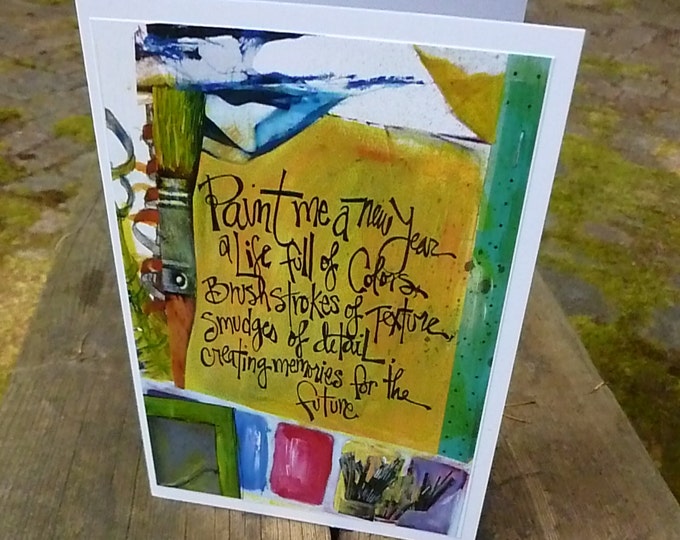 Paint me a new Year
a Life full of Colors
Brushstrokes of Texture
smudges of detail
creating memories for the
future